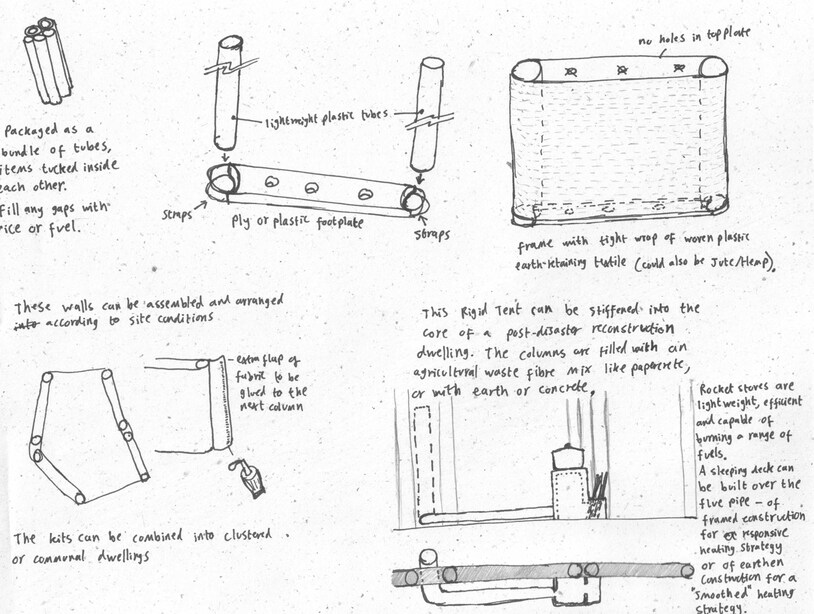 Packaged as a
bundle of tubes,
items tucked inside
each other.
Fill any gaps with
rice or fuel.
lightweight plastic tubes
straps
Ply or plastic footplate
straps
no holes in topplate
frame with tight wrap of woven plastic
earth-retaining textile (could also be Jute/Hemp).
These walls can be assembled and arranged
into according to site conditions
extra flap of
fabric to be
glued to the
next column
The kits can be combined into clustered
or communal dwellings
This Rigid Tent can be stiffened into the
core of a post-disaster reconstruction
dwelling. The columns are filled with an
agricultural waste fibre mix like papercrete,
or with earth or concrete.
Rocket stoves are
lightweight, efficient
and capable of
burning a range of
fuels.
A sleeping deck can
be built over the
flue pipe - of
framed construction
for a responsive
heating strategy
or of earthen
construction for a
"smoothed" heating
strategy.